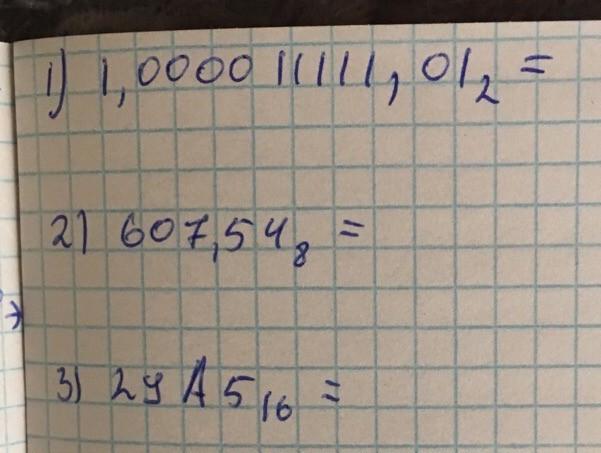 1) 1,000011111,01₂ =
2) 607,54₈ =
3) 29A5₁₆ =